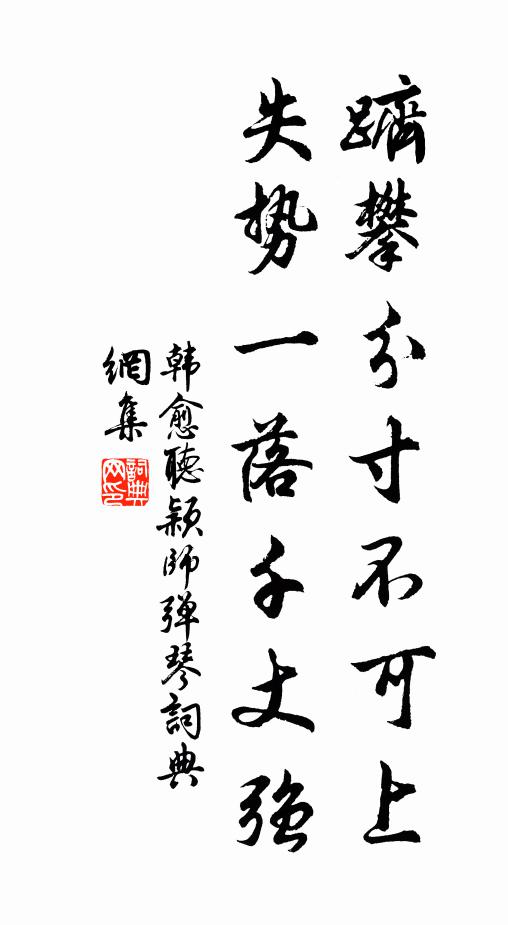 躋攀分寸不可上
失势一落千丈強
韩愈聽颖師弹琴詞典
網集
詞典
网印